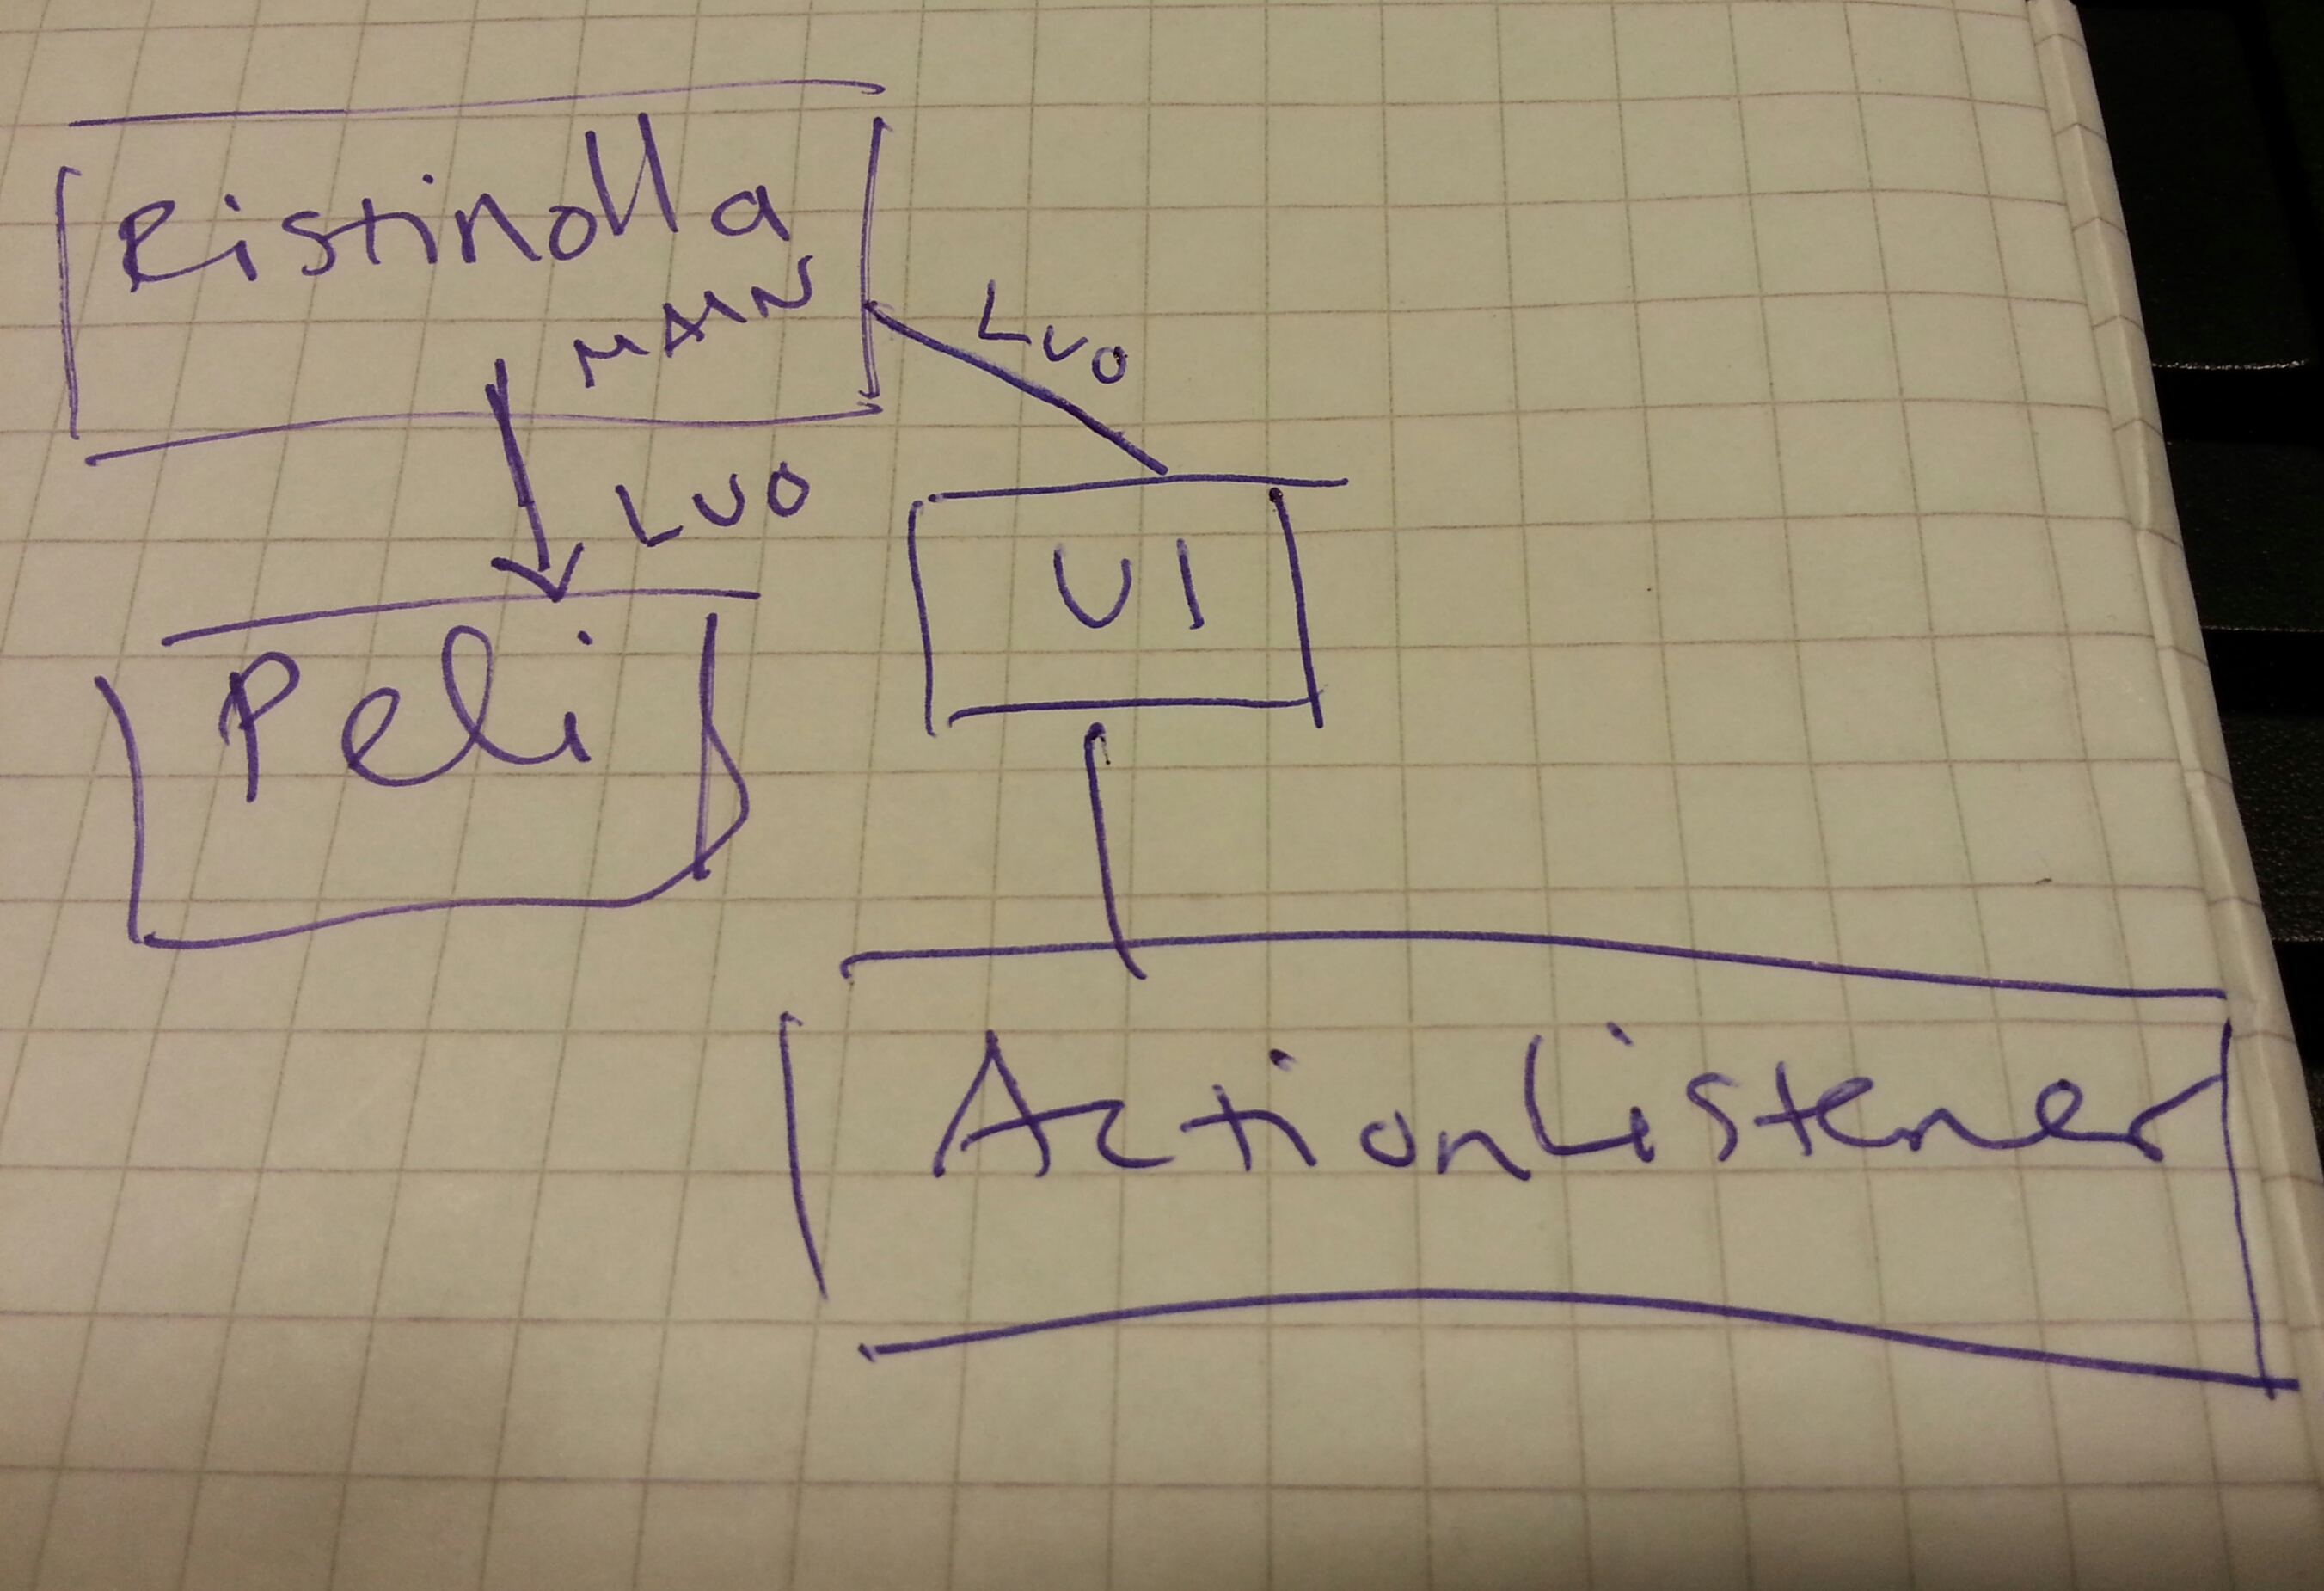 Ristinolla
MAIN
LUO
LUO
Peli
UI
ActionListener